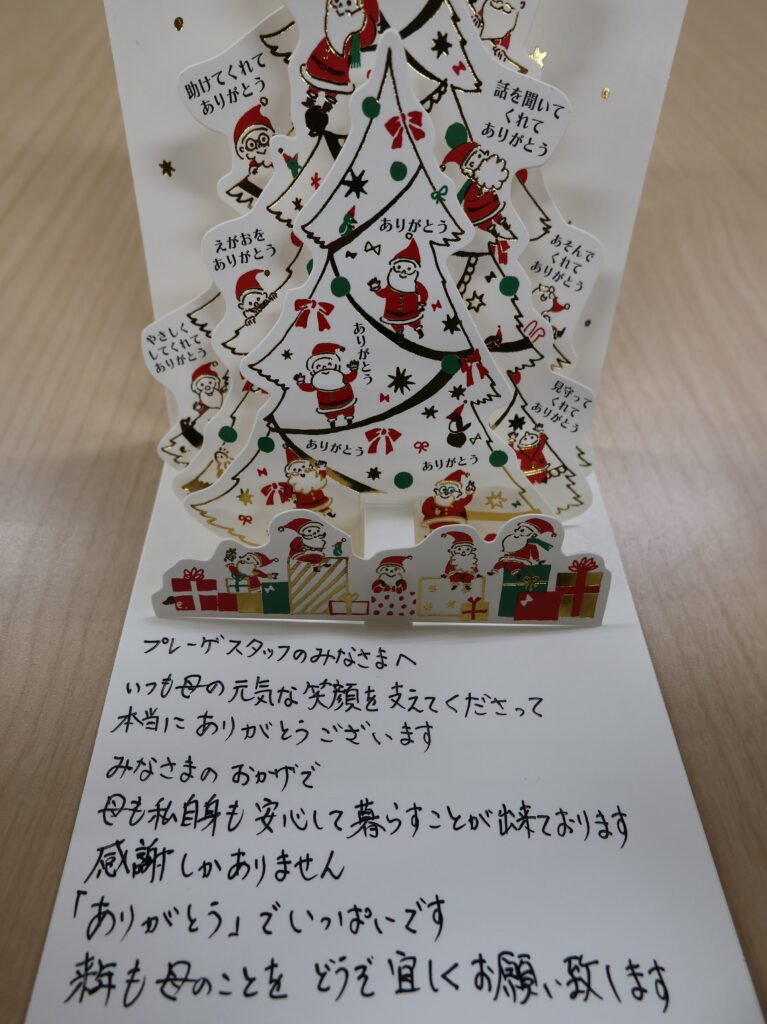 助けてくれて
ありがとう
話を聞いて
くれて
ありがとう
えがおを
ありがとう
ありがとう
あそんで
くれて
ありがとう
やさしく
してくれて
ありがとう
ありがとう
見守って
くれて
ありがとう
ありがとう
ありがとう
プレーゲスタッフのみなさまへ
いつも母の元気な笑顔を支えてくださって
本当にありがとうございます
みなさまのおかげで
母も私自身も安心して暮らすことが出来ております
感謝しかありません
「ありがとう」でいっぱいです
来年も母のことをどうぞ宜しくお願い致します